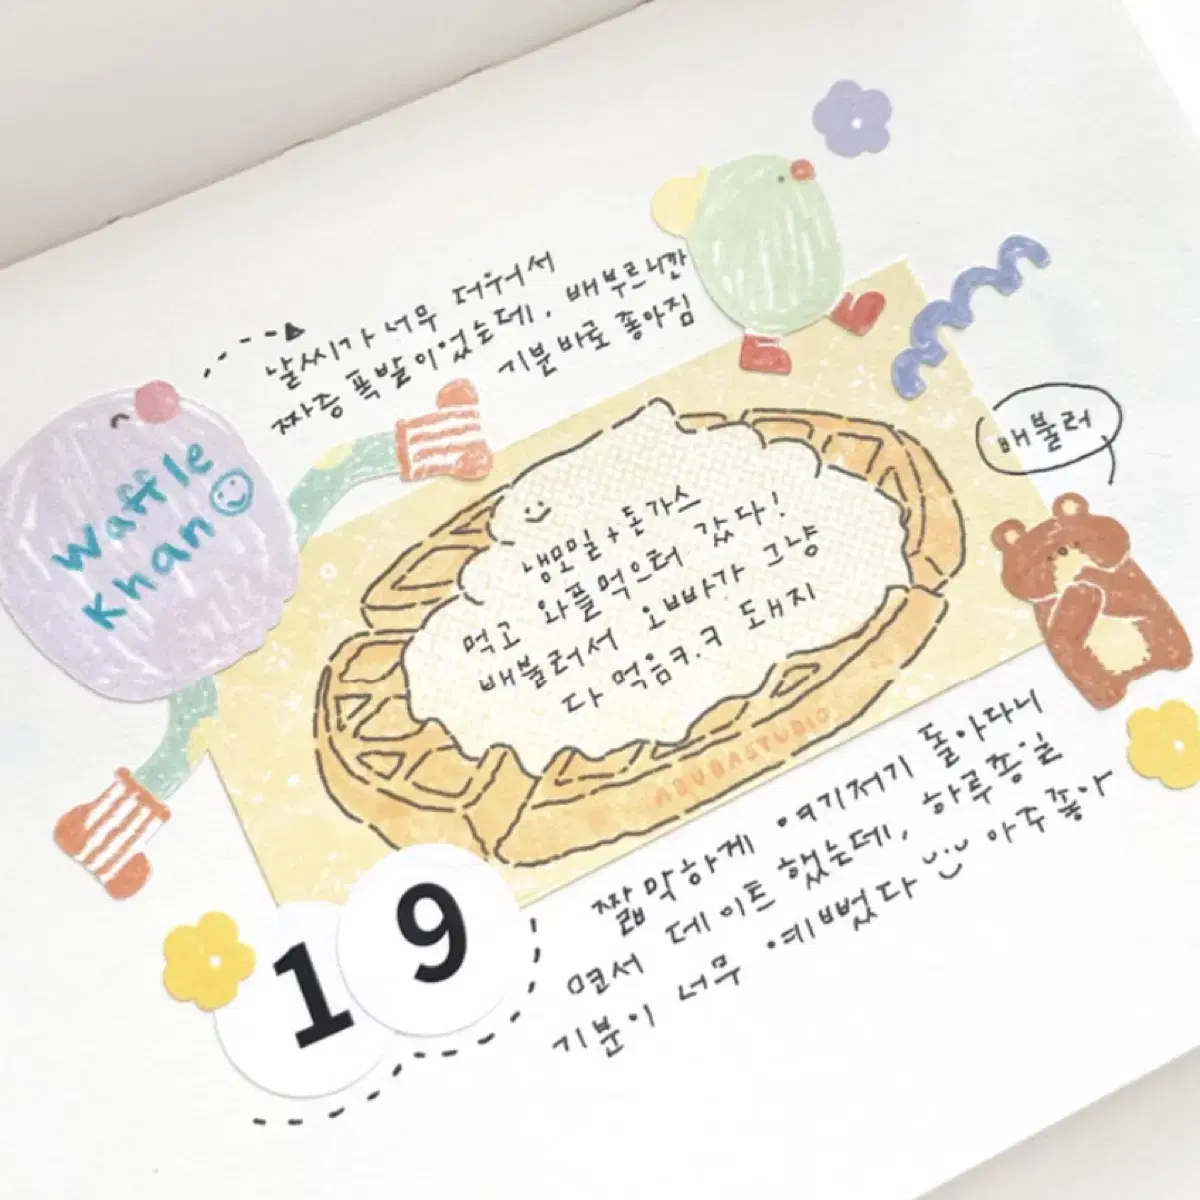 날씨가 너무 더워서
짜증 폭발이었는데, 배부르니깐
기분바로 좋아짐
Waffle
Khan
배불러
냉모밀+돈가스
먹고 와플먹으러 갔다!
배불러서 오빠가 그냥
다 먹음ㅋ.ㅋ 돼지
ADUBASTUDIO
19
짧막하게 여기저기 돌아다니
면서 데이트 했는데, 하루종일
기분이 너무 예뻤다 아주좋아